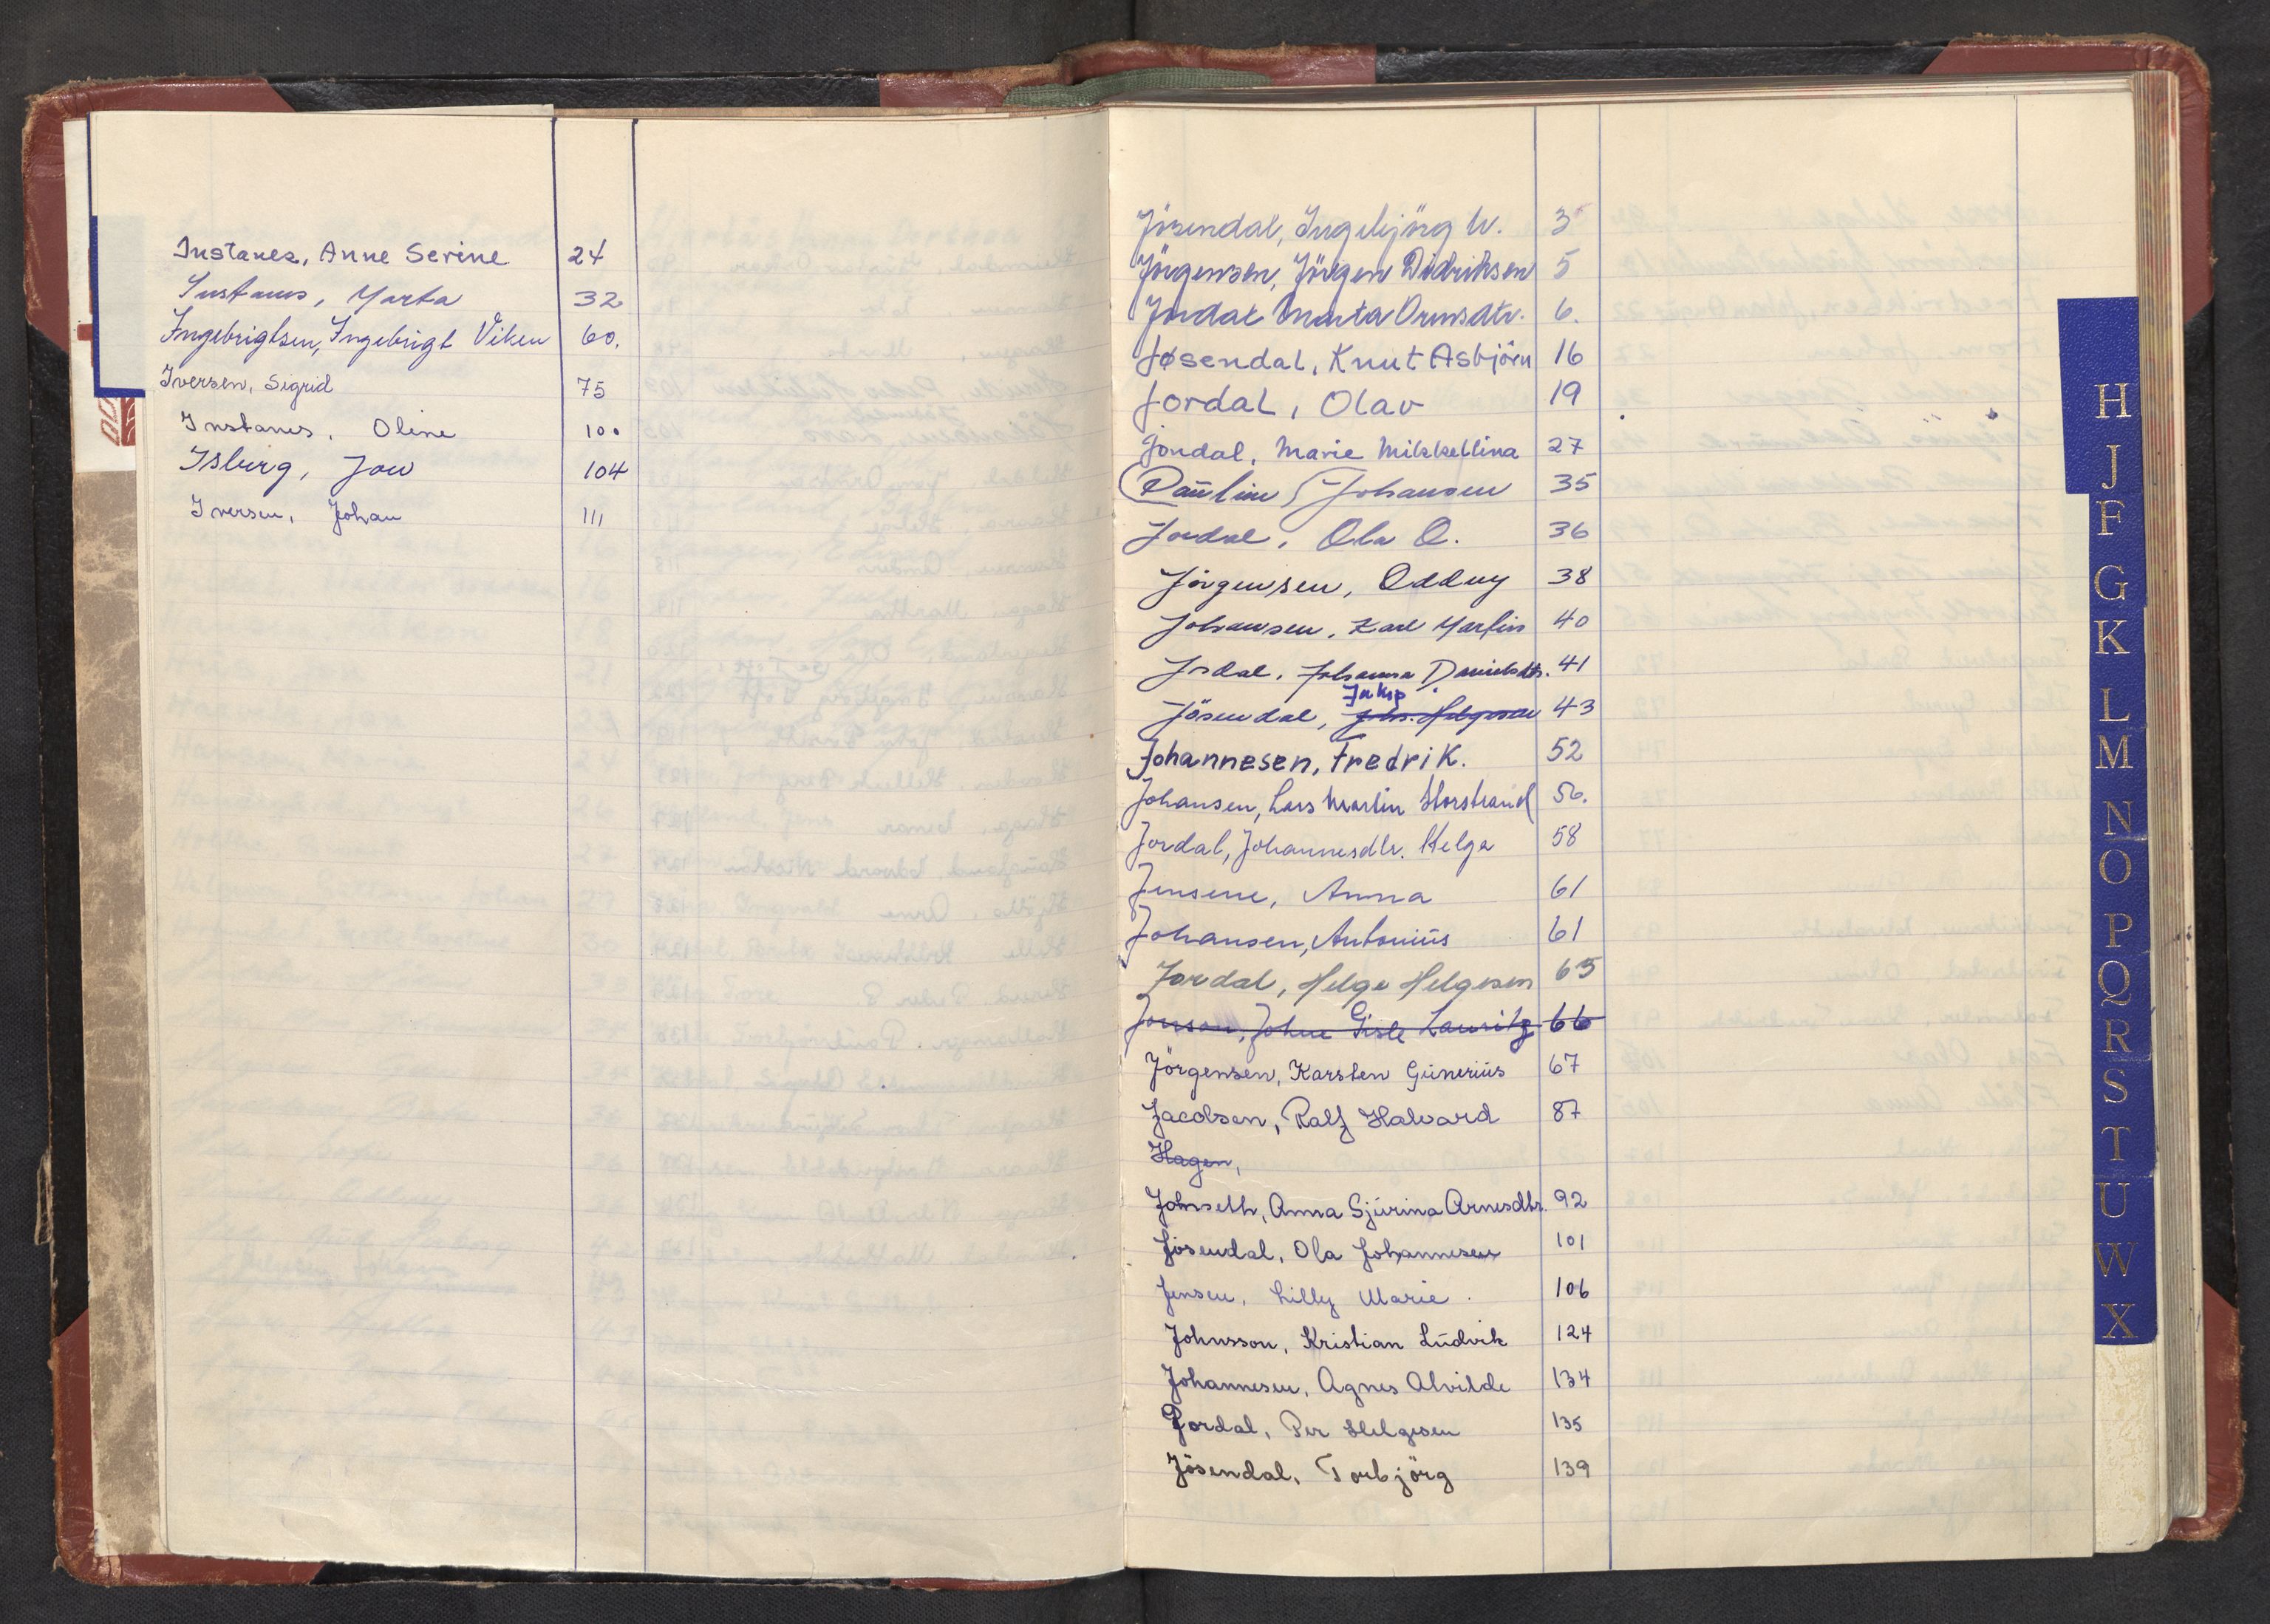 Instanes, Anne Serine 24
Instanes, Marta 32
Ingebrigtsen, Ingebrigt Viken 60.
Iversen, Sigrid 75
Instanes, Oline 100
Isberg, Jow 104
Iversen, Johan 111
Jösendal, Ingebjörg W. 3
Jörgensen, Jörgen Didriksen 5
Jordal Marta Ormsdtr. 6.
Jøsendal, Knut Asbjörn 16
Jordal, Olav 19
Jordal, Marie Mikkellina 27
(Pauline) Johansen 35
Jordal, Ola O. 36
Jörgensen, Oddny 38
Johansen, Karl Martin 40
Jordal, Johanna Danielsdtr. 41
Jakop
Jösendal, Johs. Helgesen 43
Johannesen, Fredrik. 52
Johansen, Lars Martin Storstrand 56.
Jordal, Johannesdtr. Helga 58
Jensene, Anna 61
Johansen, Antonius 61
Jordal, Helge Helgesen 65
Jonson, Johne Gisle Lauritz 66
Jörgensen, Karsten Gunerius 67
Jacobsen, Ralf Halvard 87
Hagen,
Johnseth, Anna Sjurina Arnesdtr. 92
Jösendal, Ola Johannesen 101
Jensen, Lilly Marie 106
Johnsson, Kristian Ludvik 124
Johannesen, Agnes Alvilde 134
Jordal, Per Helgesen 135
Jösendal, Torbjörg 139
H
J
F
G
K
L
M
N
O
P
Q
R
S
T
U
W
X